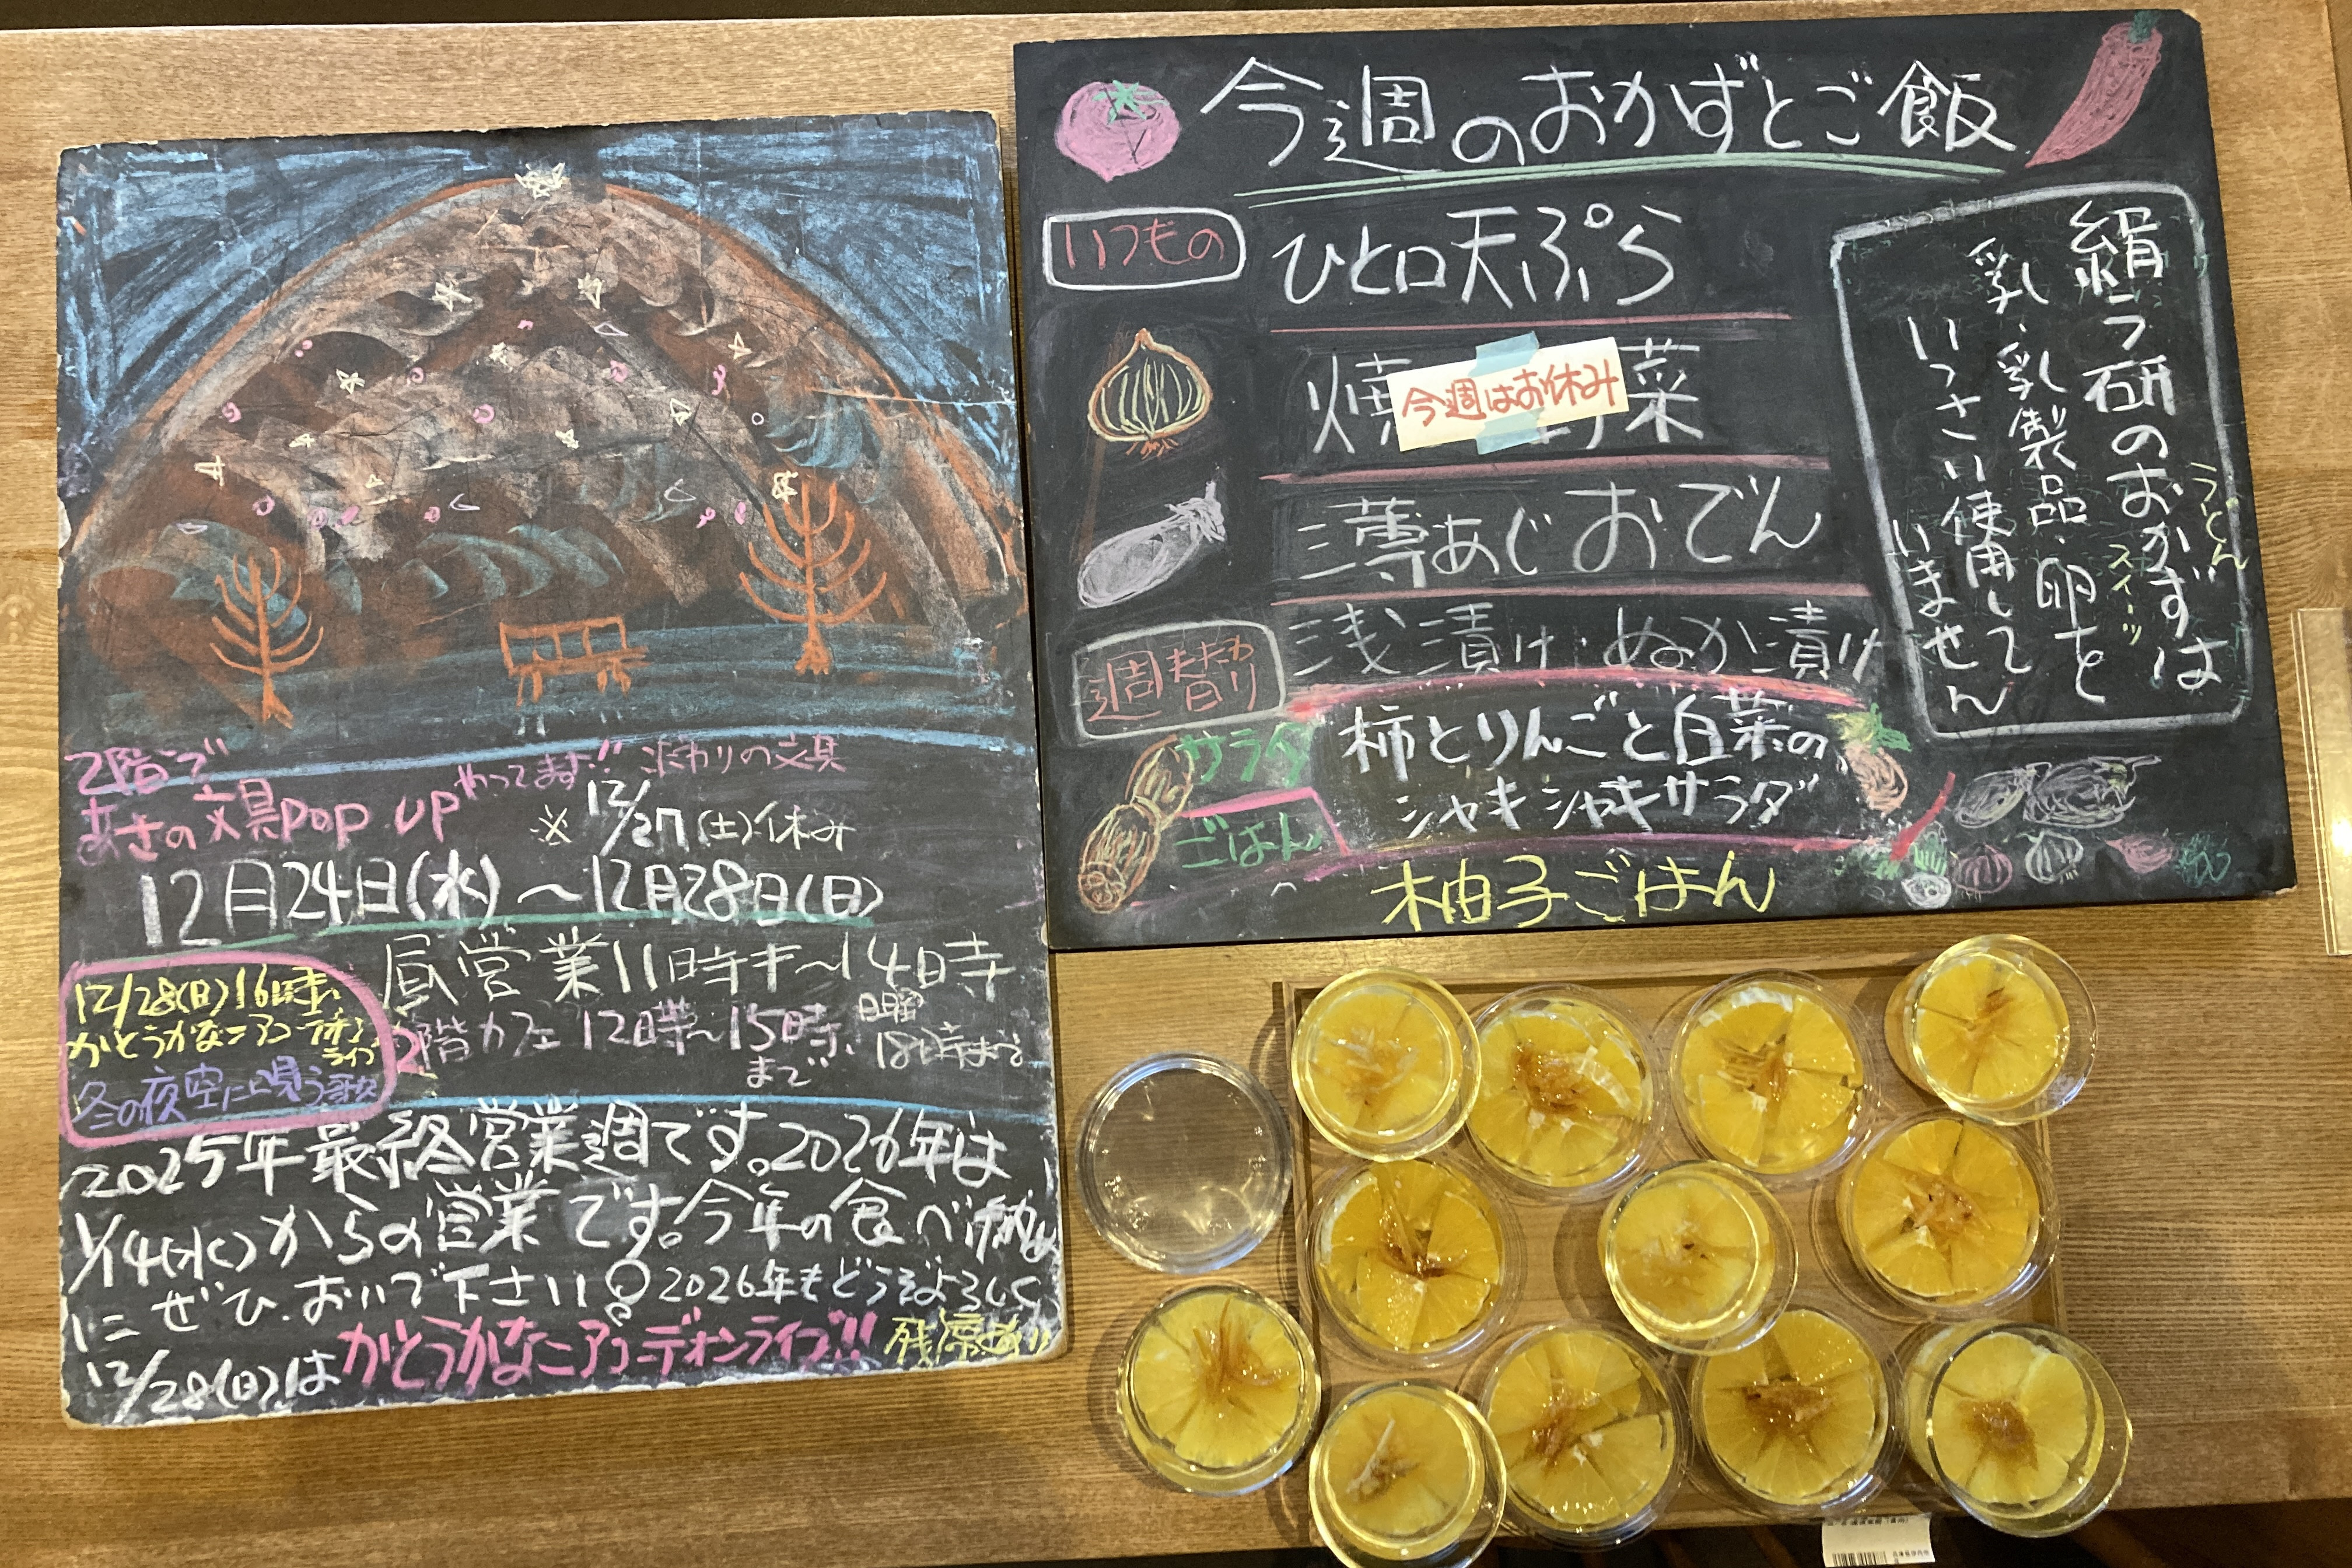 2階で
あさの文具POP UPやってます!! こだわりの文具
※12/27(土)休み
12月24日(水)〜12月28日(日)
昼営業11時半〜14時
2階カフェ 12時〜15時まで
日曜
18時まで
12/28(日)16時
かとうかなこアコーデオン
ライブ
冬の夜空に唄う歌
2025年最終営業週です。2026年は
1/14(水)からの営業です。今年の食べ納め
にぜひ.おいで下さい!2026年もどうぞよろしく
12/28(日)は かとうかなこアコーディオンライブ!! 残席あり
今週のおかずとご飯
いつもの
ひと口天ぷら
焼 菜
今週はお休み
薄あじおでん
浅漬け・ぬか漬け
週替わり
サラダ
柿とりんごと白菜の
シャキシャキサラダ
ごはん
柚子ごはん
絹ラ研のおかずは
うどん
スイーツ
乳・乳製品・卵を
いっさい使用して
いません